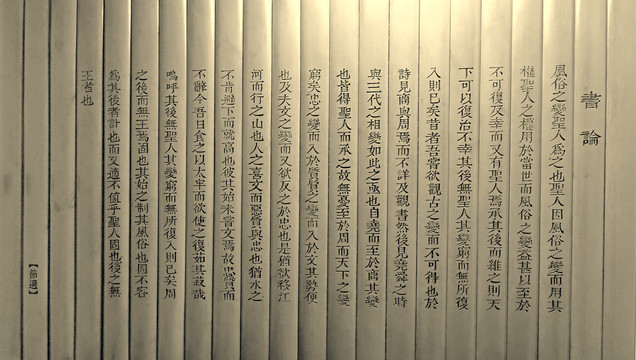 書論
風俗之變聖人為之也聖人因風俗之變而用其
權聖人之權用於當世而風俗之變益甚以至於
不可復反幸而又有聖人焉承其後而維之則天
下可以復治不幸其後無聖人其變窮而無所復
入則已矣昔者吾嘗欲觀古之變而不可得也於
詩見商與周焉而不詳及觀書然後見堯舜之時
與三代之相變如此之亟也自堯而至於商其變
也皆得聖人而承之故無憂至於周而天下之變
窮矣忠之變而入於質質之變而入於文其勢便
也及夫文之變而又欲反之於忠也是猶欲移江
河而行之山也人之喜文而惡質與忠也猶水之
不肯避下而就高也彼其始未嘗文焉故忠質而
不辭今吾日食之以太牢而欲使之復茹其菽哉
嗚呼其後無聖人其變窮而無所復入則已矣周
之後而無王焉固也其始之制其風俗也固不容
為其後者計也而又適不值乎聖人固也後之無
王者也
【節選】